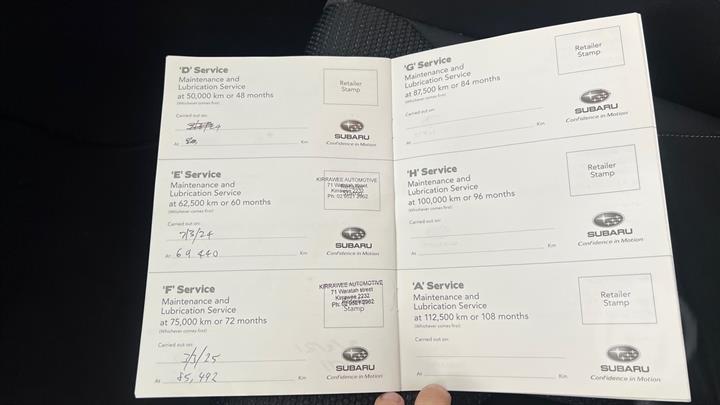 'D' Service
Maintenance and
Lubrication Service
at 50,000 km or 48 months
(Whichever comes first)
Retailer
Stamp
Carried out on:
At
Km
SUBARU
Confidence in Motion
'E' Service
Maintenance and
Lubrication Service
at 62,500 km or 60 months
(Whichever comes first)
KIRRAWEE AUTOMOTIVE
71 Waratah street
Kirrawee 2232
Carried out on:
7/3/24
At 69 440 Km
SUBARU
Confidence in Motion
'F' Service
Maintenance and
Lubrication Service
at 75,000 km or 72 months
(Whichever comes first)
KIRRAWEE AUTOMOTIVE
71 Waratah street
Kirrawee 2232
Stamp
Carried out on:
3/3/25
At 85,492 Km
SUBARU
Confidence in Motion
'G' Service
Maintenance and
Lubrication Service
at 87,500 km or 84 months
(Whichever comes first)
Retailer
Stamp
Carried out on:
At
Km
SUBARU
Confidence in Motion
'H' Service
Maintenance and
Lubrication Service
at 100,000 km or 96 months
(Whichever comes first)
Retailer
Stamp
Carried out on:
At
Km
SUBARU
Confidence in Motion
'A' Service
Maintenance and
Lubrication Service
at 112,500 km or 108 months
(Whichever comes first)
Retailer
Stamp
Carried out on:
At
Km
SUBARU
Confidence in Motion